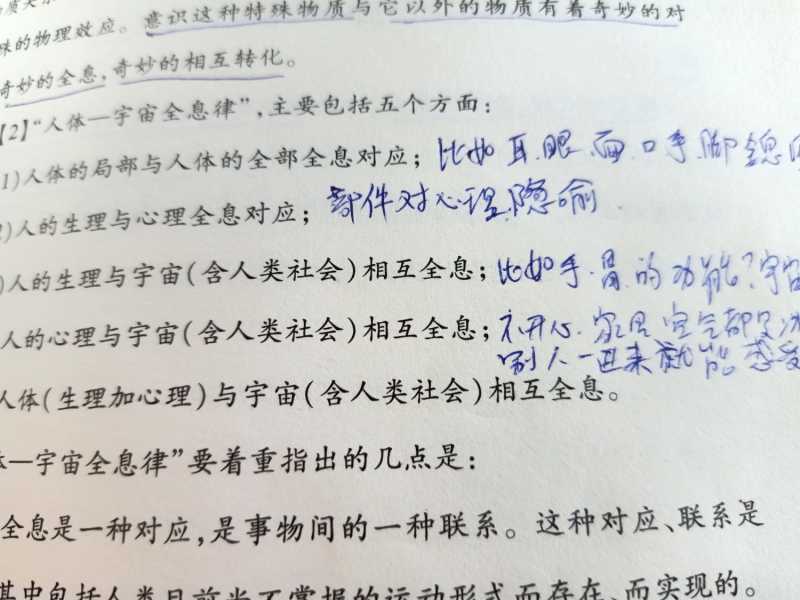 殊的物理效应。意识这种特殊物质与它以外的物质有着奇妙的对
奇妙的全息,奇妙的相互转化。
【2】“人体—宇宙全息律”,主要包括五个方面:
1)人体的局部与人体的全部全息对应; 比如耳.眼.面.口手.脚全息
2)人的生理与心理全息对应; 部件对心理.隐喻
)人的生理与宇宙(含人类社会)相互全息; 比如手.胃的功能?宇宙
人的心理与宇宙(含人类社会)相互全息; 不开心.家里空气都
别人一进来就能感受
人体(生理加心理)与宇宙(含人类社会)相互全息。
体—宇宙全息律”要着重指出的几点是:
全息是一种对应,是事物间的一种联系。这种对应、联系是
其中包括人类目前尚不掌握的运动形式而存在、而实现的。